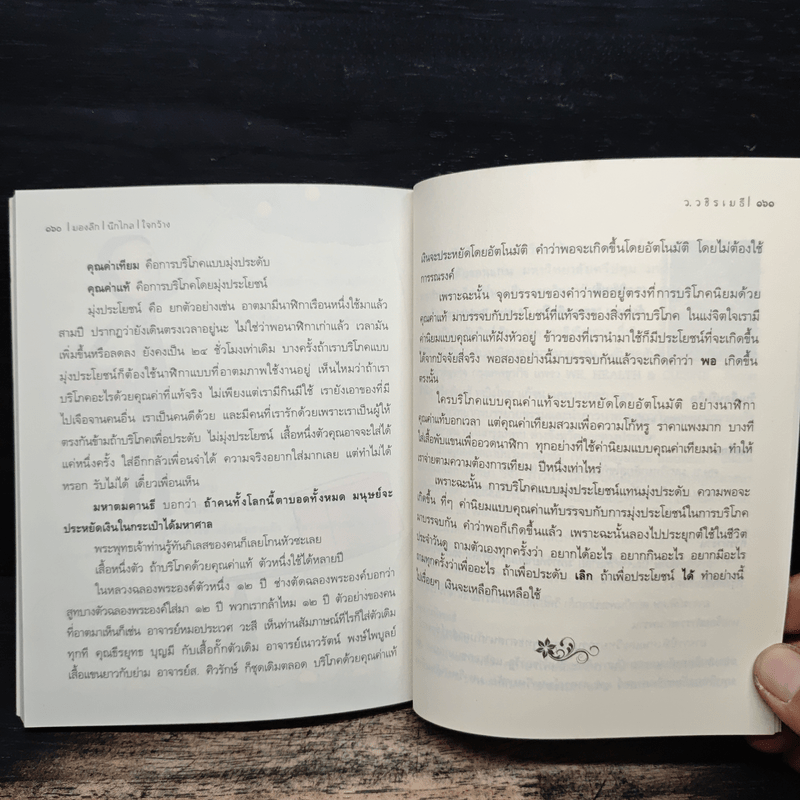 ๑๖๐ | มองลึก | นึกไกล | ใจกว้าง
คุณค่าเทียม คือการบริโภคแบบมุ่งประดับ
คุณค่าแท้ คือการบริโภคโดยมุ่งประโยชน์
มุ่งประโยชน์ คือ ยกตัวอย่างเช่น อาตมามีนาฬิกาเรือนหนึ่งใช้มาแล้ว
สามปี ปรากฏว่ายังเดินตรงเวลาอยู่นะ ไม่ใช่ว่าพอนาฬิกาเก่าแล้ว เวลามัน
เพิ่มขึ้นหรือลดลง ยังคงเป็น ๒๔ ชั่วโมงเท่าเดิม บางครั้งถ้าเราบริโภคแบบ
มุ่งประโยชน์ก็ต้องใช้นาฬิกาแบบที่อาตมภาพใช้งานอยู่ เห็นไหมว่าถ้าเรา
บริโภคอะไรด้วยคุณค่าที่แท้จริง ไม่เพียงแต่เรามีกินมีใช้ เรายังเอาของที่มี
ไปเจือจานคนอื่น เราเป็นคนดีด้วย และมีคนที่เรารักด้วยเพราะเราเป็นผู้ให้
ตรงกันข้ามถ้าบริโภคเพื่อประดับ ไม่มุ่งประโยชน์ เสื้อหนึ่งตัวคุณอาจจะใส่ได้
แค่หนึ่งครั้ง ใส่อีกกลัวเพื่อนจำได้ ความจริงอยากใส่มากเลย แต่ทำไม่ได้
หรอก รับไม่ได้ เดี๋ยวเพื่อนเห็น
มหาตมคานธี บอกว่า ถ้าคนทั้งโลกนี้ตาบอดทั้งหมด มนุษย์จะ
ประหยัดเงินในกระเป๋าได้มหาศาล
พระพุทธเจ้าท่านรู้ทันกิเลสของคนก็เลยโกนหัวซะเลย
เสื้อหนึ่งตัว ถ้าบริโภคด้วยคุณค่าแท้ ตัวหนึ่งใช้ได้หลายปี
ในหลวงฉลองพระองค์ตัวหนึ่ง ๑๒ ปี ช่างตัดฉลองพระองค์บอกว่า
สูทบางตัวฉลองพระองค์ใส่มา ๑๒ ปี พวกเรากล้าไหม ๑๒ ปี ตัวอย่างของคน
ที่อาตมาเห็นก็เช่น อาจารย์หมอประเวศ วะสี เห็นท่านสัมภาษณ์ทีไรก็ใส่ตัวเดิม
ทุกที คุณธีรยุทธ บุญมี กับเสื้อกั๊กตัวเดิม อาจารย์เนาวรัตน์ พงษ์ไพบูลย์
เสื้อแขนยาวกับย่าม อาจารย์ส. ศิวรักษ์ ก็ชุดเดิมตลอด บริโภคด้วยคุณค่าแท้
ว.วชิรเมธี | ๑๖๑
เงินจะประหยัดโดยอัตโนมัติ คำว่าพอจะเกิดขึ้นโดยอัตโนมัติ โดยไม่ต้องใช้
การรณรงค์
เพราะฉะนั้น จุดบรรจบของคำว่าพออยู่ตรงที่การบริโภคนิยมด้วย
คุณค่าแท้ มาบรรจบกับประโยชน์ที่แท้จริงของสิ่งที่เราบริโภค ในแง่จิตใจเรามี
ค่านิยมแบบคุณค่าแท้ฝังหัวอยู่ ข้าวของที่เรานำมาใช้ก็มีประโยชน์ที่จะเกิดขึ้น
ได้จากปัจจัยสี่จริง พอสองอย่างนี้มาบรรจบกันแล้วจะเกิดคำว่า พอ เกิดขึ้น
ตรงนั้น
ใครบริโภคแบบคุณค่าแท้จะประหยัดโดยอัตโนมัติ อย่างนาฬิกา
คุณค่าแท้บอกเวลา แต่คุณค่าเทียมสวมเพื่อความโก้หรู ราคาแพงมาก บางที
ใส่เสื้อพับแขนเพื่ออวดนาฬิกา ทุกอย่างที่ใช้ค่านิยมแบบคุณค่าเทียมนำ ทำให้
เราจ่ายตามความต้องการเทียม ปีหนึ่งเท่าไหร่
เพราะฉะนั้น การบริโภคแบบมุ่งประโยชน์แทนมุ่งประดับ ความพอจะ
เกิดขึ้น ที่ๆ ค่านิยมแบบคุณค่าแท้บรรจบกับการมุ่งประโยชน์ในการบริโภค
มาบรรจบกัน คำว่าพอก็เกิดขึ้นแล้ว เพราะฉะนั้นลองไปประยุกต์ใช้ในชีวิต
ประจำวันดู ถามตัวเองทุกครั้งว่า อยากได้อะไร อยากกินอะไร อยากมีอะไร
ถามทุกครั้งว่าเพื่ออะไร ถ้าเพื่อประดับ เลิก ถ้าเพื่อประโยชน์ ได้ ทำอย่างนี้
ไปเรื่อยๆ เงินจะเหลือกินเหลือใช้